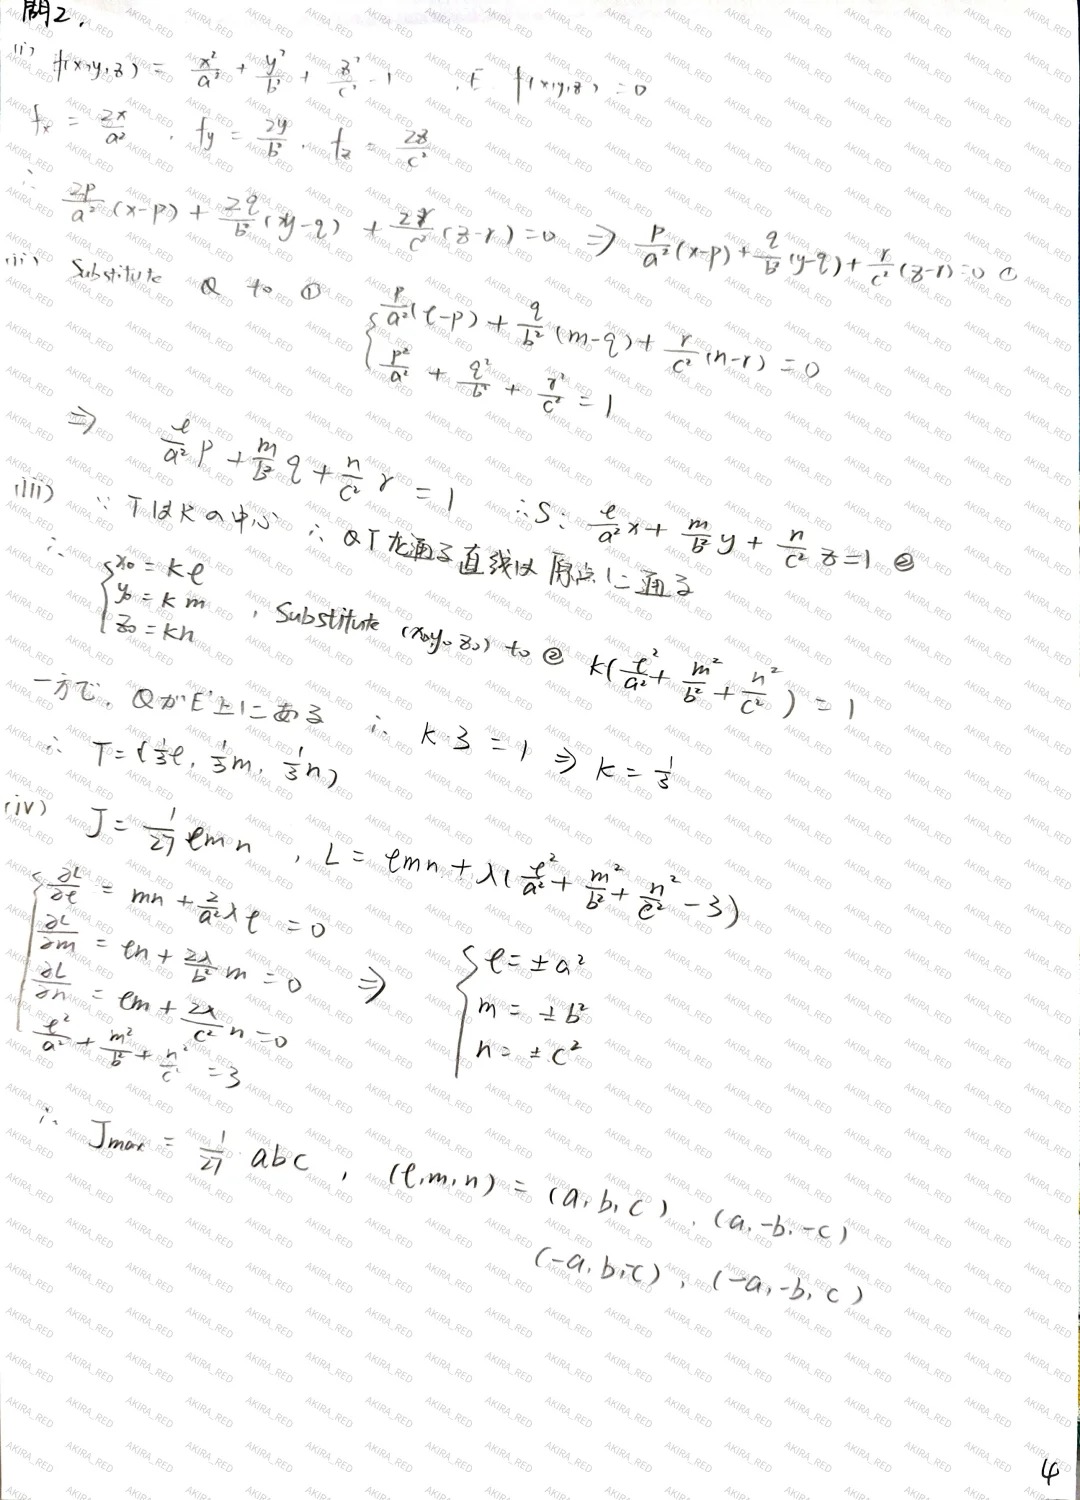 問2.
(i) f(x,y,z) = x²/a² + y²/b² + z²/c² - 1 , E: f(x,y,z) = 0
fx = 2x/a² , fy = 2y/b² , fz = 2z/c²
∴ 2p/a² (x-p) + 2q/b² (y-q) + 2r/c² (z-r) = 0 ⇒ p/a² (x-p) + q/b² (y-q) + r/c² (z-r) = 0 ①
(ii) Substitute Q to ①
{ p/a² (ℓ-p) + q/b² (m-q) + r/c² (n-r) = 0
p²/a² + q²/b² + r²/c² = 1
⇒ ℓ/a² p + m/b² q + n/c² r = 1 ∴ S: ℓ/a² x + m/b² y + n/c² z = 1 ②
(iii) ∵ TはKの中心 ∴ QT 通る直線は原点に通る
∴ { x₀ = kℓ
y₀ = km , Substitute (x₀,y₀,z₀) to ② k(ℓ²/a² + m²/b² + n²/c²) = 1
z₀ = kn
一方で, QがE'上にある ∴ k·3 = 1 ⇒ k = 1/3
∴ T = (1/3 ℓ, 1/3 m, 1/3 n)
(iv) J = 1/27 ℓmn , L = ℓmn + λ(ℓ²/a² + m²/b² + n²/c² - 3)
{ ∂L/∂ℓ = mn + 2/a² λℓ = 0
∂L/∂m = ℓn + 2λ/b² m = 0 ⇒ { ℓ = ±a²
∂L/∂n = ℓm + 2λ/c² n = 0 m = ±b²
ℓ²/a² + m²/b² + n²/c² = 3 n = ±c²
∴ Jmax = 1/27 abc , (ℓ,m,n) = (a,b,c) , (a,-b,-c)
(-a,b,-c) , (-a,-b,c)
4
AKIRA_RED